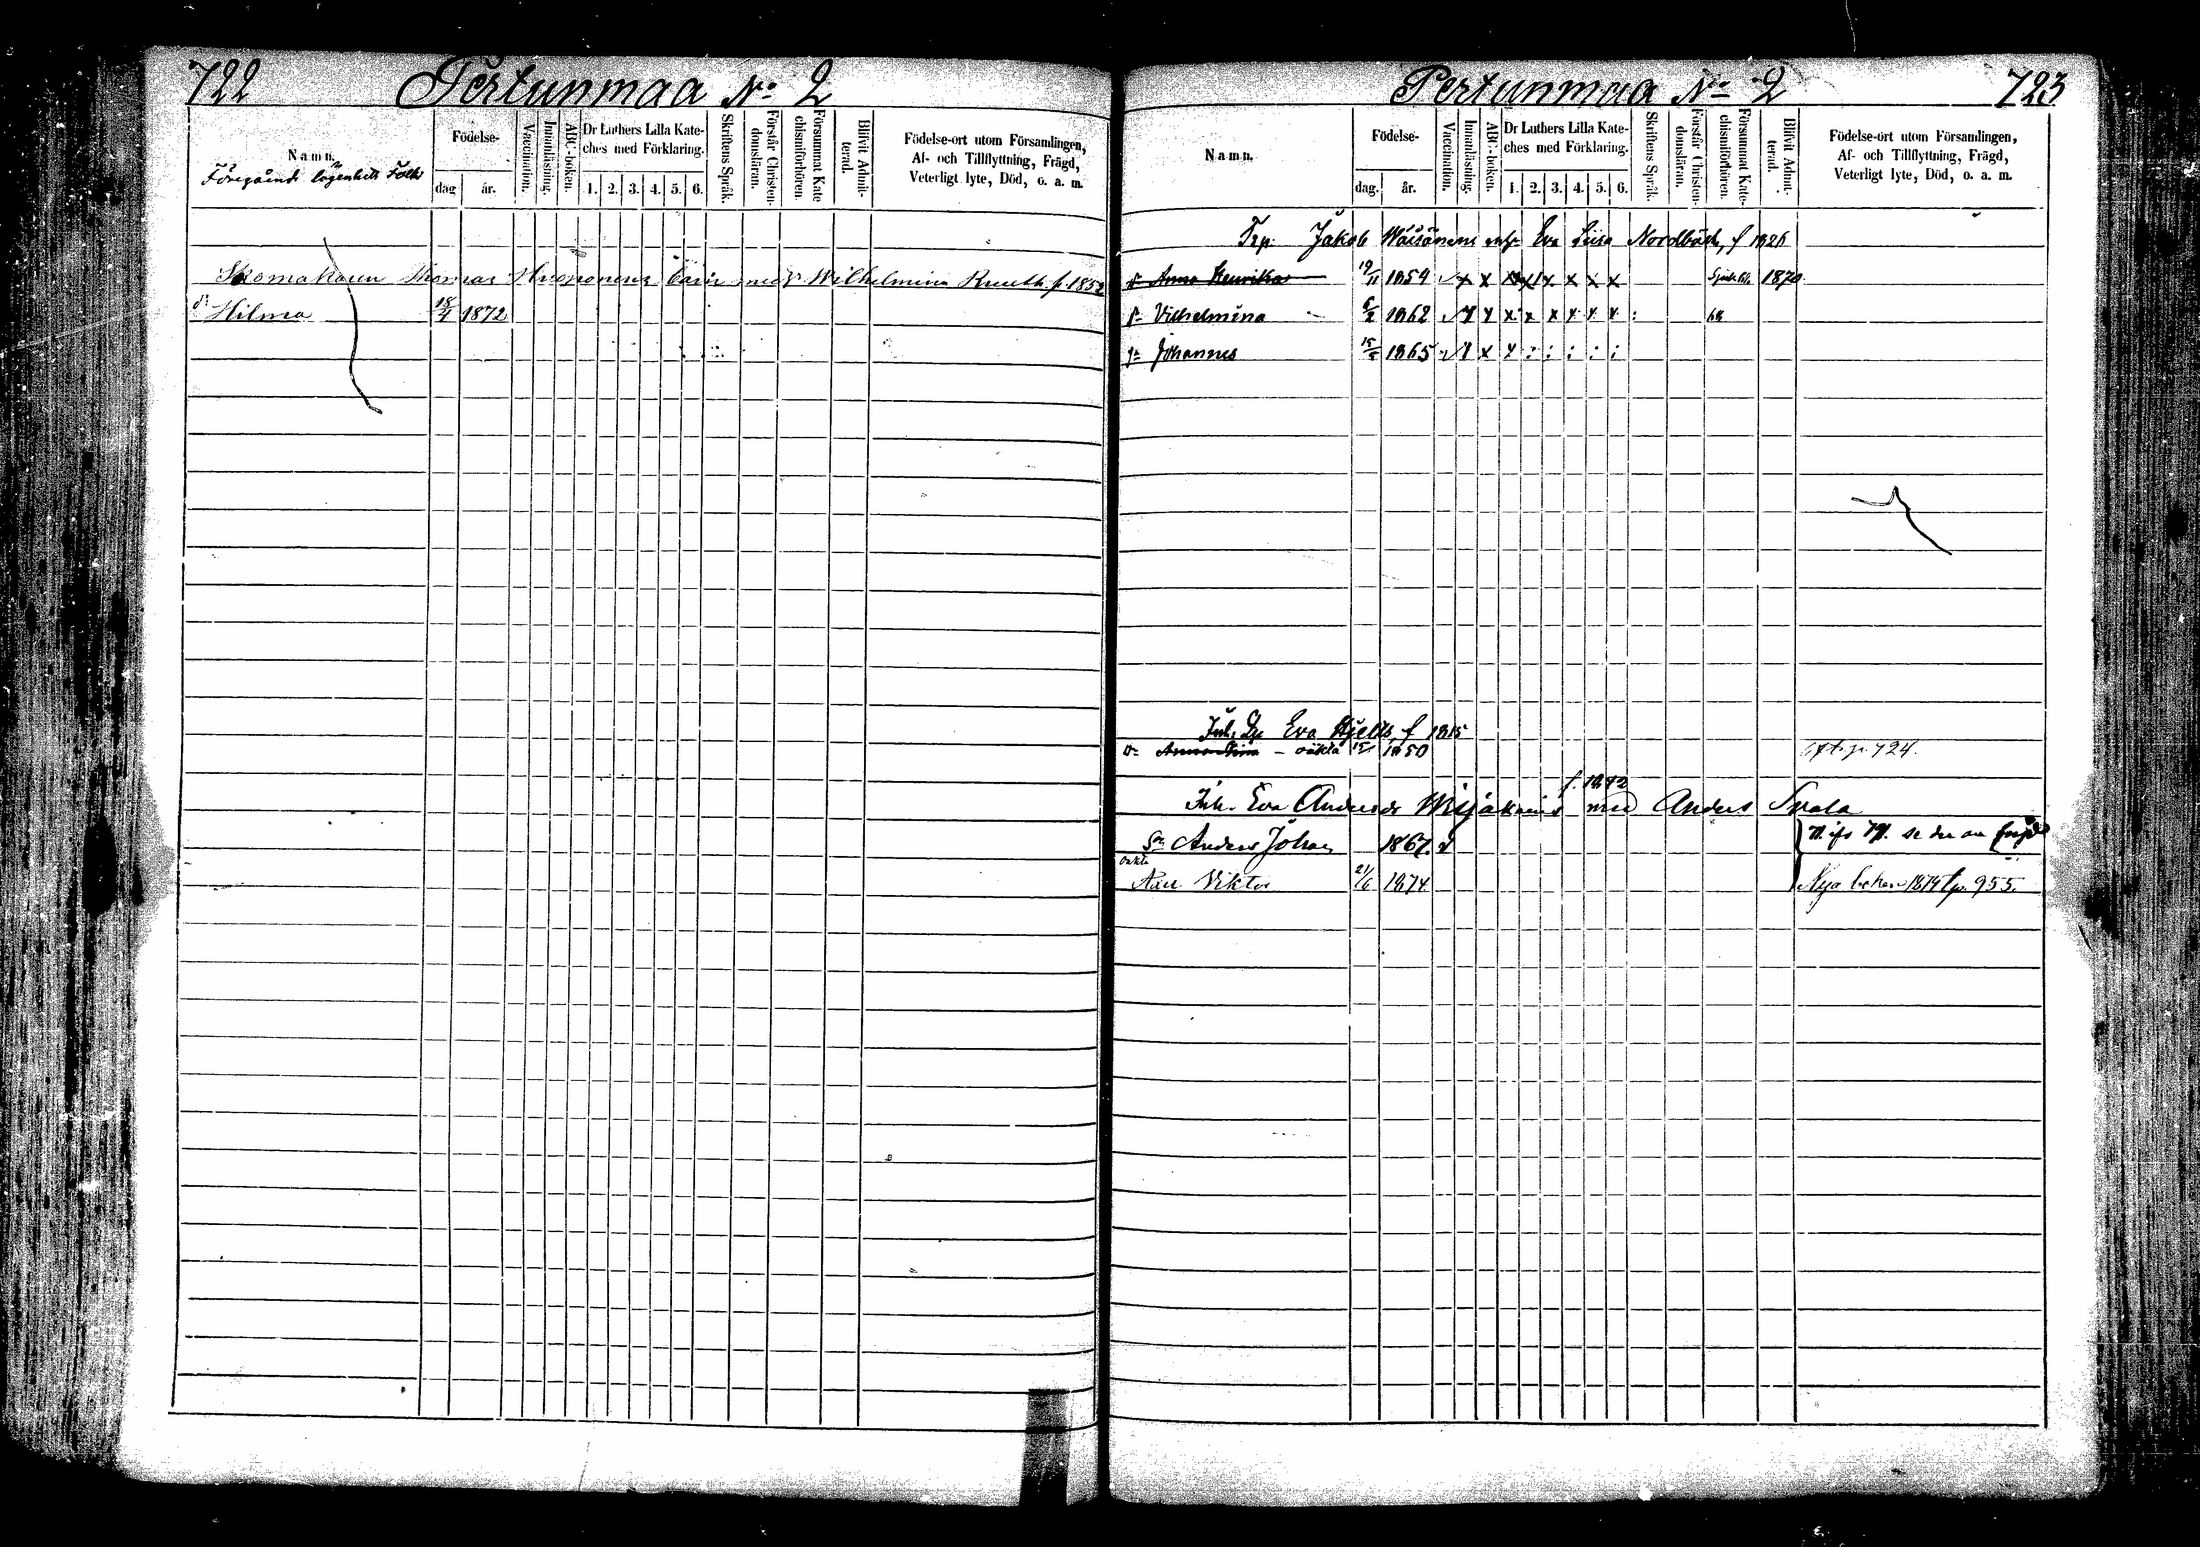 722 Pertunmaa No 2
Namn.
Föregående lägenhets Folk
Födelse-
dag år.
Vaccination.
Innanläsning.
ABC-boken.
Dr Luthers Lilla Kate-
ches med Förklaring.
1. 2. 3. 4. 5. 6.
Skriftens Språk.
Förstår Christen-
domsläran.
Försummat Kate
chismiförhören.
Blifvit Admit-
terad.
Födelse-ort utom Församlingen,
Af- och Tillflyttning, Frägd,
Veterligt lyte, Död, o. a. m.
Skomakaren Thomas Huoponens barn med Wilhelmina f. 1852
dr Hilma 18/4 1872
Pertunmaa No 2 723
Namn.
Födelse-
dag. år.
Vaccination.
Innanläsning.
ABC-boken.
Dr Luthers Lilla Kate-
ches med Förklaring.
1. 2. 3. 4. 5. 6.
Skriftens Språk.
Förstår Christen-
domsläran.
Försummat Kate-
chismiförhören.
Blifvit Admit-
terad.
Födelse-ort utom Församlingen,
Af- och Tillflyttning, Frägd,
Veterligt lyte, Död, o. a. m.
Trp. Jakob Wäisänens Eva Lisa f 1826
dr Anna Henrika 19/11 1854 x x x x x x x x 1870
dr Vilhelmina 6/2 1862 x x x x x x 68
sn Johannes 1865 x x x : : : : :
Inh. Eva f 1815
dr Anna Stina oäkta 1850 724.
f. 1842
Inh. Eva Andersdr med Anders
Sn Anders Johan 1867.
oäkta
Axel Viktor 21/6 1874 Nya boken 1874 p. 955.